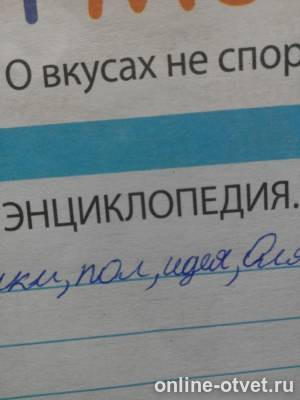 О вкусах не спор
ЭНЦИКЛОПЕДИЯ.
пол, идея,
online-otvet.ru